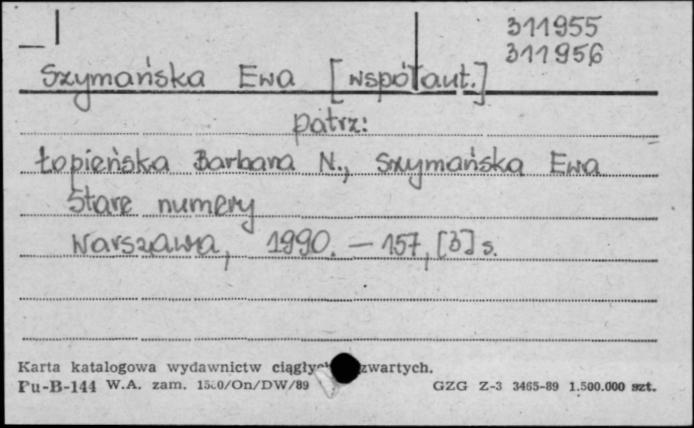 311955
311956
Szymańska Ewa [współaut.]
patrz:
Łopieńska Barbara N., Szymańska Ewa
Stare numery
Warszawa, 1990. – 157, [3] s.
Karta katalogowa wydawnictw ciągłych zwartych.
Pu-B-144 W.A. zam. /On/DW/89 GZG Z-3 3465-89 1.500.000 szt.